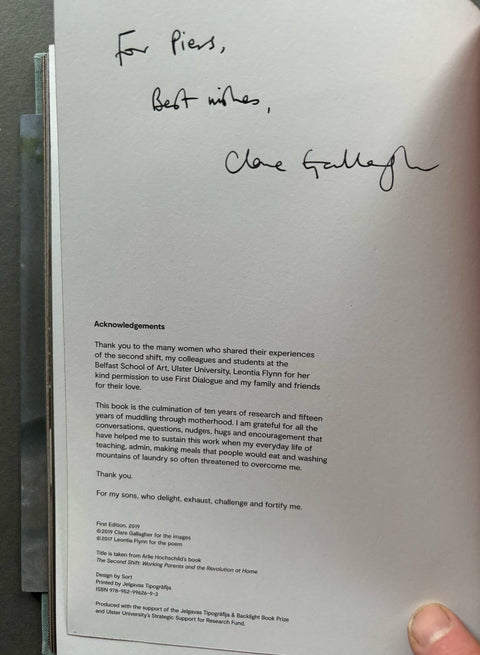 For Piers,
Best wishes,
Clare Gallagher
Acknowledgements
Thank you to the many women who shared their experiences
of the second shift, my colleagues and students at the
Belfast School of Art, Ulster University, Leontia Flynn for her
kind permission to use First Dialogue and my family and friends
for their love.
This book is the culmination of ten years of research and fifteen
years of muddling through motherhood. I am grateful for all the
conversations, questions, nudges, hugs and encouragement that
have helped me to sustain this work when my everyday life of
teaching, admin, making meals that people would eat and washing
mountains of laundry so often threatened to overcome me.
Thank you.
For my sons, who delight, exhaust, challenge and fortify me.
First Edition, 2019
©2019 Clare Gallagher for the images
©2017 Leontia Flynn for the poem
Title is taken from Arlie Hochschild's book
The Second Shift: Working Parents and the Revolution at Home
Design by Sort
Printed by Jelgavas Tipogrāfija
ISBN 978-952-99626-9-3
Produced with the support of the Jelgavas Tipogrāfija & Backlight Book Prize
and Ulster University's Strategic Support for Research Fund.